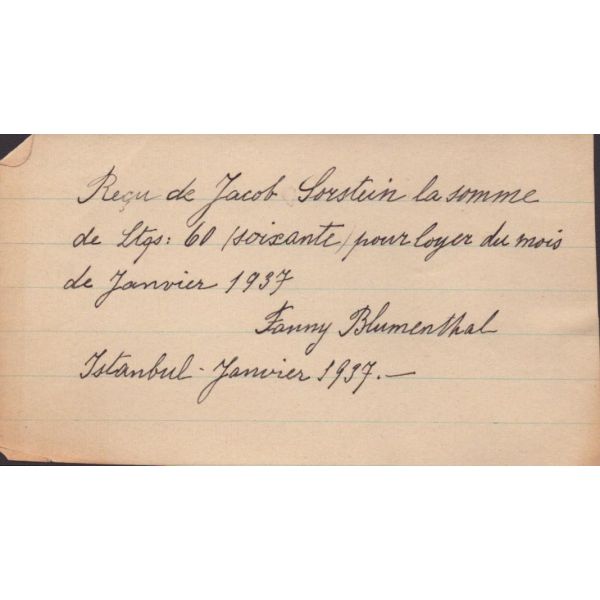 Reçu de Jacob Sorstein la somme
de Ltqs: 60 (soixante) pour loyer du mois
de Janvier 1937
Fanny Blumenthal
Istanbul - Janvier 1937. —